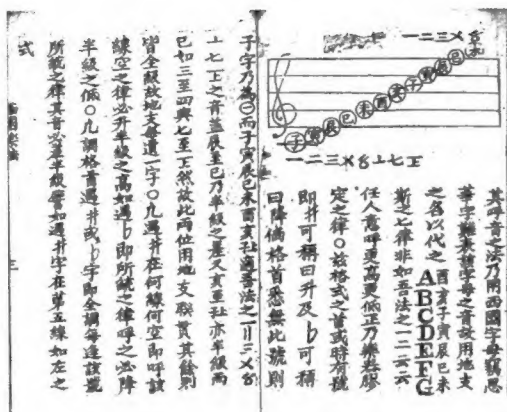 一二三〤
子寅辰巳未酉亥子寅辰巳未
一二三〤8〦七正
其呼音之法乃用西國字母竊恐
華字難表該字母之音故用地支
之名以代之 酉亥子寅辰巳未 ABCDEFG
斯之七律非如五法之一二云云
任人意呼更高更低正乃樂若膠
定之律○茲格式之首或時有號
即井可稱曰升及b可稱
曰降倘格首悉無此號則
子字乃為㊀而子寅辰巳未酉亥法之一二三〤8
〦七正之音蓋辰至巳乃半級之差又亥至亦半級兩
已如三至四與七至正然故此兩位用地支聯貫其餘則
皆全級故地支每遺一字○凡遇井在何線何空即呼該
線空之律必升半級之高如遇b即所號之律呼之必降
半級之低○凡調格首遇井或b字即全調每逢該號
所號之律其音必差半級譬如遇井字在第五線如左之
式
三